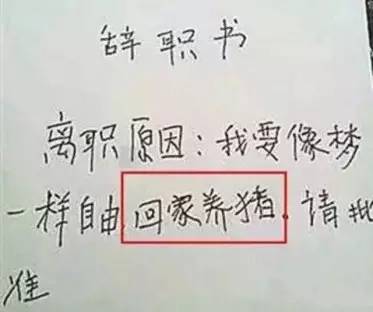 辞职书
离职原因：我要像梦
一样自由回家养猪．请批
准